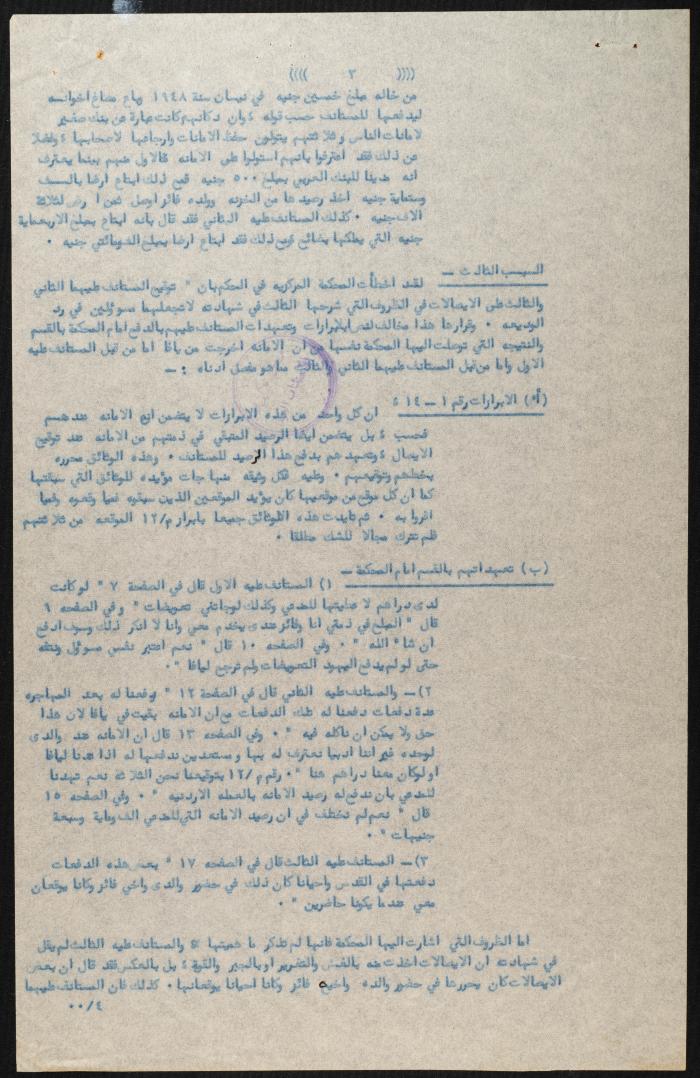 (((( ٣ ))))
من خاله مبلغ خمسين جنيه في نيسان سنة ١٩٤٨ وباع مصاغ اخواته
ليدفعها للمستانف حسب قوله ٤ وان دكانهم كانت عبارة عن بنك صغير
لامانات الناس وثلاثتهم يتولون حفظ الامانات وارجاعها لاصحابها ٤ وفضلا
عن ذلك فقد اعترفوا بانهم استولوا على الامانه فالاول منهم بينما يعترف
انه مدينا للبنك العربي بمبلغ ٥٠٠ جنيه فمع ذلك ابتاع ارضا بالـف
وستماية جنيه اخذ رصيدها من الخزنه وولده فائز اوصل ثمن ارض لثلاثة
الاف جنيه ٠ كذلك المستانف عليه الثاني فقد قال بانه ابتاع بمبلغ الاربعماية
جنيه التي يملكها بضائع ومع ذلك فقد ابتاع ارضا بمبلغ الف ومائتي جنيه ٠
السبب الثالث ــ
لقد اخطأت المحكمة المركزيه في الحكم بان " توقيع المستانف عليهما الثاني
والثالث على الايصالات في الظروف التي شرحها الثالث في شهادته لا تجعلهما مسؤولين في رد
الوديعه ٠ وقرارها هذا مخالف لنص الابرازات وتعهدات المستانف عليهم بالدفع امام المحكمة بالقسم
والنتيجه التي توصلت اليها المحكمة نفسها من ان الامانه اخرجت من يافا اما من قبل المستانف عليه
الاول واما من قبل المستانف عليهما الثاني والثالث مما هو مفصل ادناه : ــ
(أ) الابرازات رقم ١ ــ ١٤ ٤
ان كل واحد من هذه الابرازات لا يتضمن ان الامانه عندهم
فحسب ٤ بل يتضمن ايضا الرصيد المتبقي في ذمتهم من الامانه عند توقيع
الايصال ٤ وتعهدهم بدفع هذا الرصيد للمستانف ٠ وهذه الوثائق محرره
بخطهم وتوقيعهم ٠ وعليه فكل وثيقه منها جات مؤيده للوثائق التي سبقتها
كما ان كل موقع من موقعيها كان يؤيد الموقعين الذين سبقوه فيما وقعوه وفيما
اقروا به ٠ ثم تايدت هذه الوثائق جميعا بابراز م/١٢ الموقعه من ثلاثتهم
فلم تترك مجالا للشك مطلقا ٠
(ب) تعهداتهم بالقسم امام المحكمة ــ
١) المستانف عليه الاول قال في الصفحة ٧ " لو كانت
لدى دراهم لاعطيتها للمدعي وكذلك لو جائتني تعويضات " وفي الصفحه ٩
قال " المبلغ في ذمتي انا وفائز عندى يخدم معي وانا لا انكر ذلك وسوف ادفع
ان شاء الله " ٠ وفي الصفحه ١٠ قال " نعم اعتبر نفسي مسؤول
حتى لو لم يدفع اليهود التعويضات ولم نرجع ليافا " ٠
٢) ــ والمستانف عليه الثاني قال في الصفحة ١٢ " دفعنا له بعد المهاجره
عدة دفعات دفعنا له تلك الدفعات مع ان الامانه بقيت في يافا لان هذا
حق ولا يمكن ان ناكله فيه " ٠ وفي الصفحه ١٣ قال ان الامانه عند والدى
لوحده غير اننا ادبيا نعترف له بها ومستعدين ندفعها له اذا عدنا ليافا
او لو كان معنا دراهم هنا " ٠ رقم م/١٢ بتوقيعنا نحن الثلاثة نعم تعهدنا
للمدعي بان ندفع له رصيد الامانه بالعمله الاردنيه " ٠ وفي الصفحه ١٥
قال " نعم لم نختلف في ان رصيد الامانه التي للمدعي الف وماية وسبعة
جنيهات " ٠
٣) ــ المستانف عليه الثالث قال في الصفحه ١٧ " بعض هذه الدفعات
دفعتها في القدس واحيانا كان ذلك في حضور والدى واخي فائز وكانا يوقعان
معي عندما يكونا حاضرين " ٠
اما الظروف التي اشارت اليها المحكمة فانها لم تذكر ما هيتها ٤ والمستانف عليه الثالث لم يقل
في شهادته ان الايصالات اخذت منه بالغش والتغرير او بالجبر والقوة ٤ بل بالعكس فقد قال ان بعض
الايصالات كان يحررها في حضور والده واخيه فائز وكانا احيانا يوقعانها ٠ كذلك فان المستانف عليهما
٠٠/٤